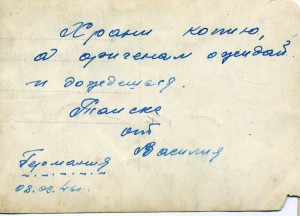 Храни копию,
а оригенал ожидай
и дождешься.
Таиске
от
Василия
Германия